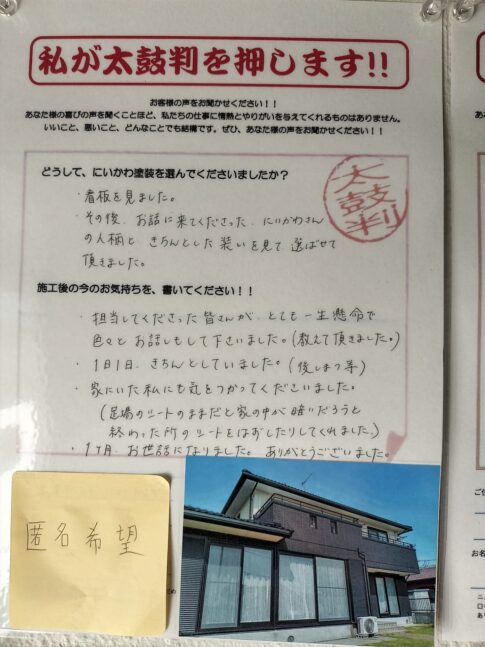 私が太鼓判を押します!!
お客様の声をお聞かせください！！
あなた様の喜びの声を聞くことほど、私たちの仕事に情熱とやりがいを与えてくれるものはありません。
いいこと、悪いこと、どんなことでも結構です。ぜひ、あなた様の声をお聞かせください！！
どうして、にいかわ塗装を選んでくださいましたか？
太鼓判
・看板を見ました。
・その後、お話に来てくださった、にいかわさん
の人柄と、きちんとした装いを見て選ばせて
頂きました。
施工後の今のお気持ちを、書いてください！！
・担当してくださった皆さんが、とても一生懸命で
色々とお話しもして下さいました。(教えて頂きました。)
・1日1日、きちんとしていました。(後しまつ等)
・家にいた私にも気をつかってくださいました。
(足場のシートのままだと家の中が暗いだろうと
終わった所のシートをはずしたりしてくれました。)
・1ヶ月、お世話になりました。ありがとうございました。
匿名希望